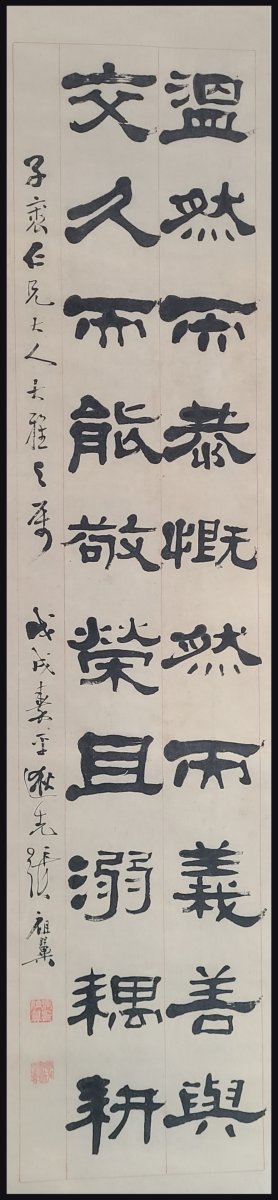 温然而恭慨然而義善與
交久而能敬榮且溺耦耕
子襄仁兄大人大雅之屬
戊戌春王逖先張祖翼